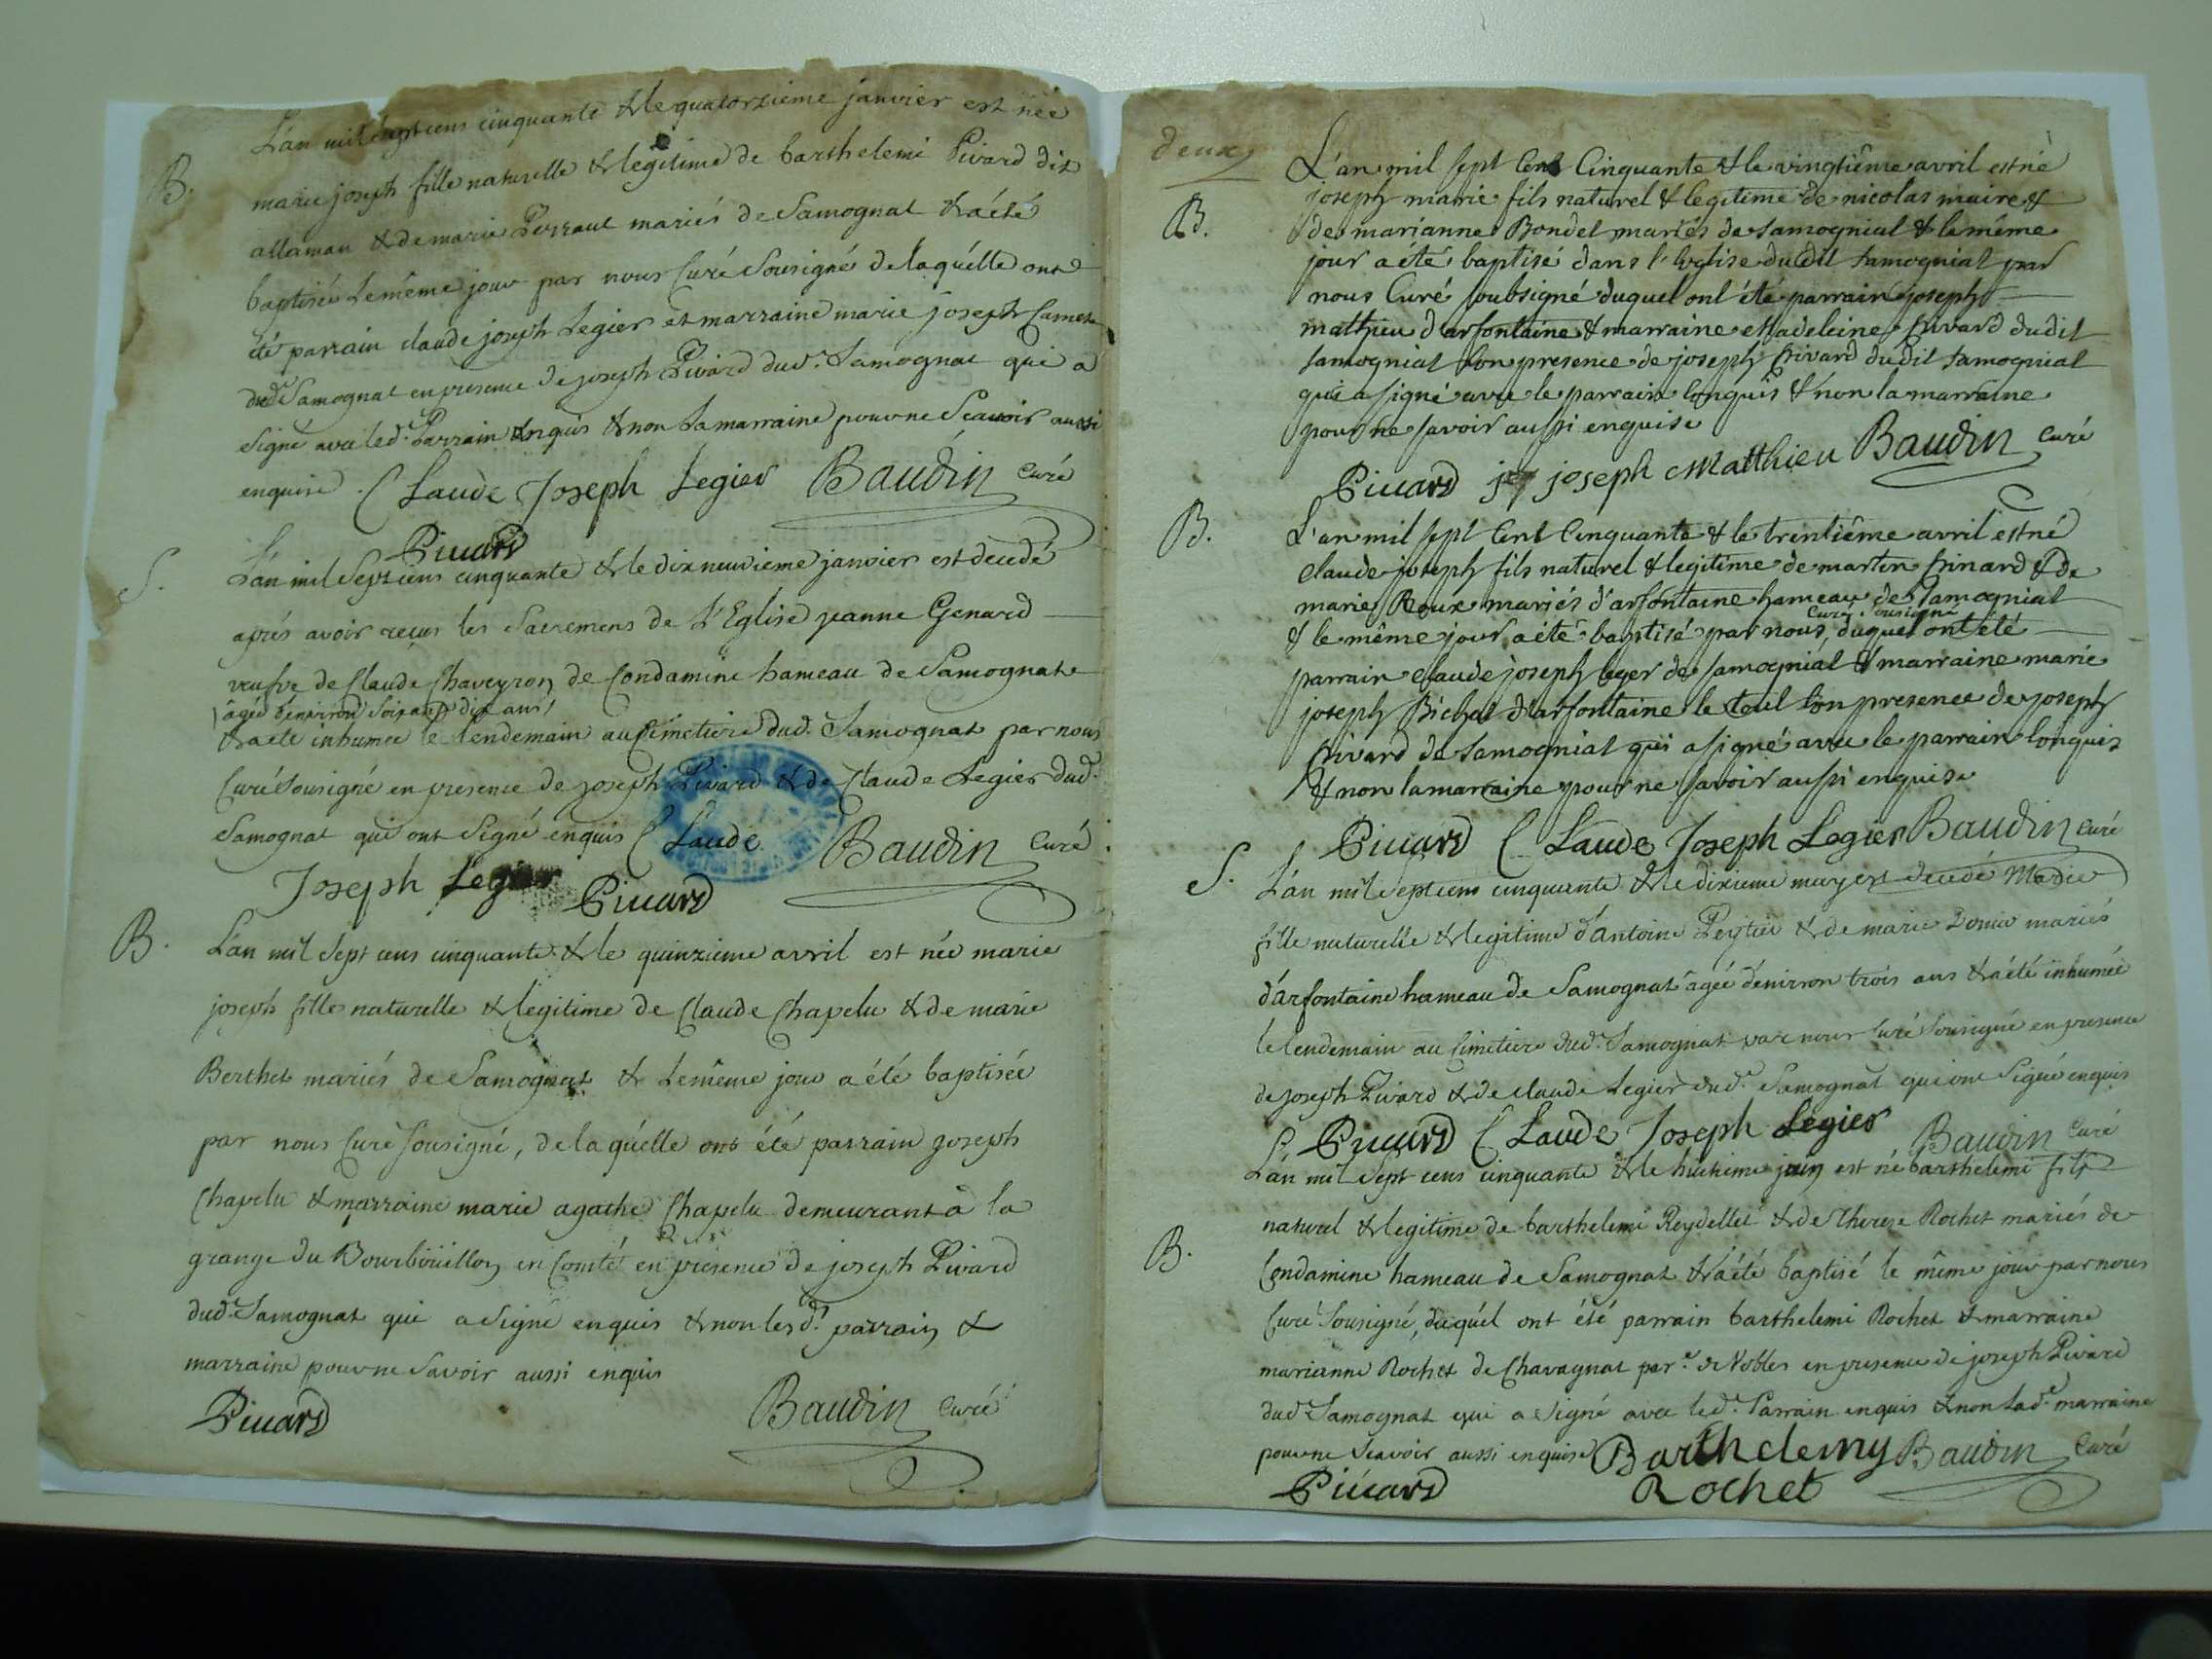 L'an mil sept cens cinquante & le quatorzieme janvier est née
B.
marie joseph fille naturelle & legitime de barthelemi Pivard dit
allaman & de marie Perraut mariés de Samognat & a été
baptisée le même jour par nous Curé Sousigné de laquélle ont
été parrain claude joseph Legier et marraine marie joseph
dud. Samognat en presence de joseph Pivard dud. Samognat qui a
Signé avec led. Parrain enquis & non la marraine pour ne Scavoir aussi
enquise . Claude Joseph Legier Baudin Curé
Pivard
S.
L'an mil Sept cens cinquante & le dix neuvieme janvier est decedé
aprés avoir reçus les Sacremens de L'Eglise jeanne Genard
veufve de Claude Chaveyron de Condamine hameau de Samognat
agée d'environ Soixante dix ans
& a eté inhumée le lendemain au Cimetiere dud. Samognat par nous
Curé Sousigné en presence de joseph Pivard & de Claude Legier dud.
Samognat qui ont Signé enquis Claude Baudin Curé
Joseph Legier Pivard
B.
L'an mil Sept cens cinquante & le quinzieme avril est née marie
joseph fille naturelle & legitime de Claude Chapelu & de marie
Berthet mariés de Samognat & le même jour a été baptisée
par nous Curé Sousigné, de laquélle ont été parrain joseph
Chapelu & marraine marie agathe Chapelu demeurant à la
grange du Bourboüillon en Comté en presence de joseph Pivard
dud. Samognat qui a Signé enquis & non lesd. parrain &
marraine pour ne Savoir aussi enquis
Pivard Baudin Curé
deux
L'an mil sept Cent Cinquante & le vingtiême avril est né
B.
joseph marie fils naturel & legitime de nicolas maire &
de marianne Bondet mariés de Samogniat & le même
jour a été baptisé dans l'Eglise dudit Samogniat par
nous Curé soubsigné duquel ont été parrain joseph
matthieu d'arfontaine & marraine Madeleine Pivard dudit
Samogniat en presence de joseph Pivard dudit Samogniat
qui a signé avec le parrain enquis & non la marraine
pour ne savoir aussi enquise
Pivard joseph Matthieu Baudin Curé
B.
L'an mil sept Cent Cinquante & le trentiême avril est né
claude joseph fils naturel & legitime de martin & de
marie Roux mariés d'arfontaine hameau de Samogniat
Curé Sousigné
& le même jour a été baptisé par nous, duquel ont été
parrain claude joseph leger de Samogniat & marraine marie
joseph d'arfontaine le tout en presence de joseph
Pivard de Samogniat qui a signé avec le parrain enquis
& non la marraine pour ne savoir aussi enquise
Pivard Claude Joseph Legier Baudin Curé
S.
L'an mil Sept cens cinquante & le dixieme may est decedé Marie
fille naturelle & legitime d'antoine & de marie mariés
d'arfontaine hameau de Samognat agée d'environ trois ans & a été inhumée
le lendemain au Cimetiere dud. Samognat par nous Curé Sousigné en presence
de joseph Pivard & de claude Legier dud. Samognat qui ont Signé enquis
Pivard Claude Joseph Legier Baudin Curé
L'an mil Sept cens cinquante & le huitieme juin est né barthelemi fils
naturel & legitime de barthelemi Reydellet & de Therese Rochet mariés de
B.
Condamine hameau de Samognat & a été baptisé le même jour par nous
Curé Sousigné, duquél ont été parrain barthelemi Rochet & marraine
marianne Rochet de Chavagnat par.e de Nobles en presence de joseph Pivard
dud. Samognat qui a Signé avec led. Parrain enquis & non lad. marraine
pour ne Scavoir aussi enquise Barthelemy Baudin Curé
Pivard Rochet